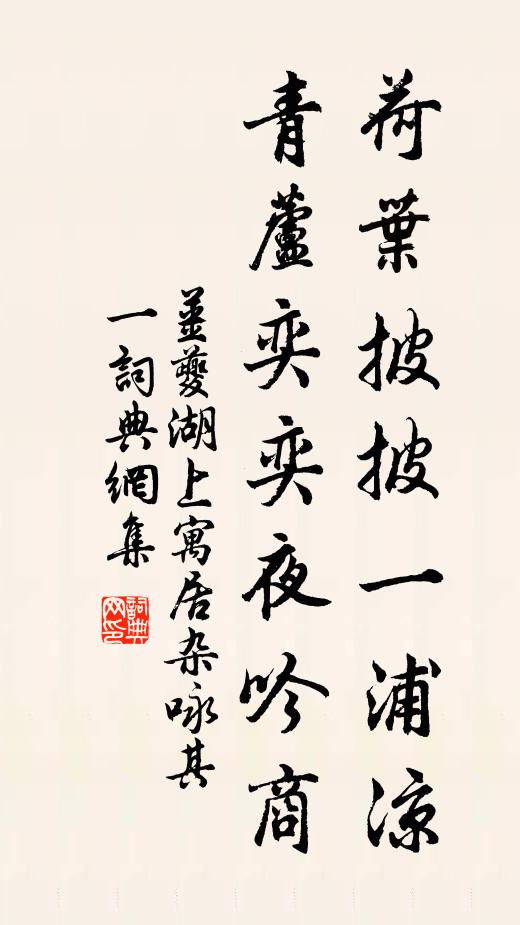 荷葉披披一浦涼
青蘆奕奕夜吟商
姜夔湖上寓居杂咏其
一詞典網集
詞典网印